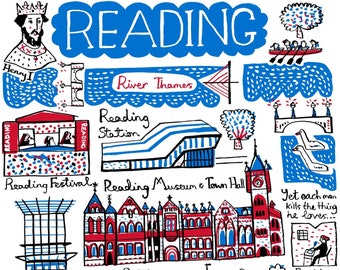 READING
Henry I
River Thames
Reading
Station
READING
READING
Reading Festival
Reading Museum & Town Hall
Yet each man
kills the thing
he loves.